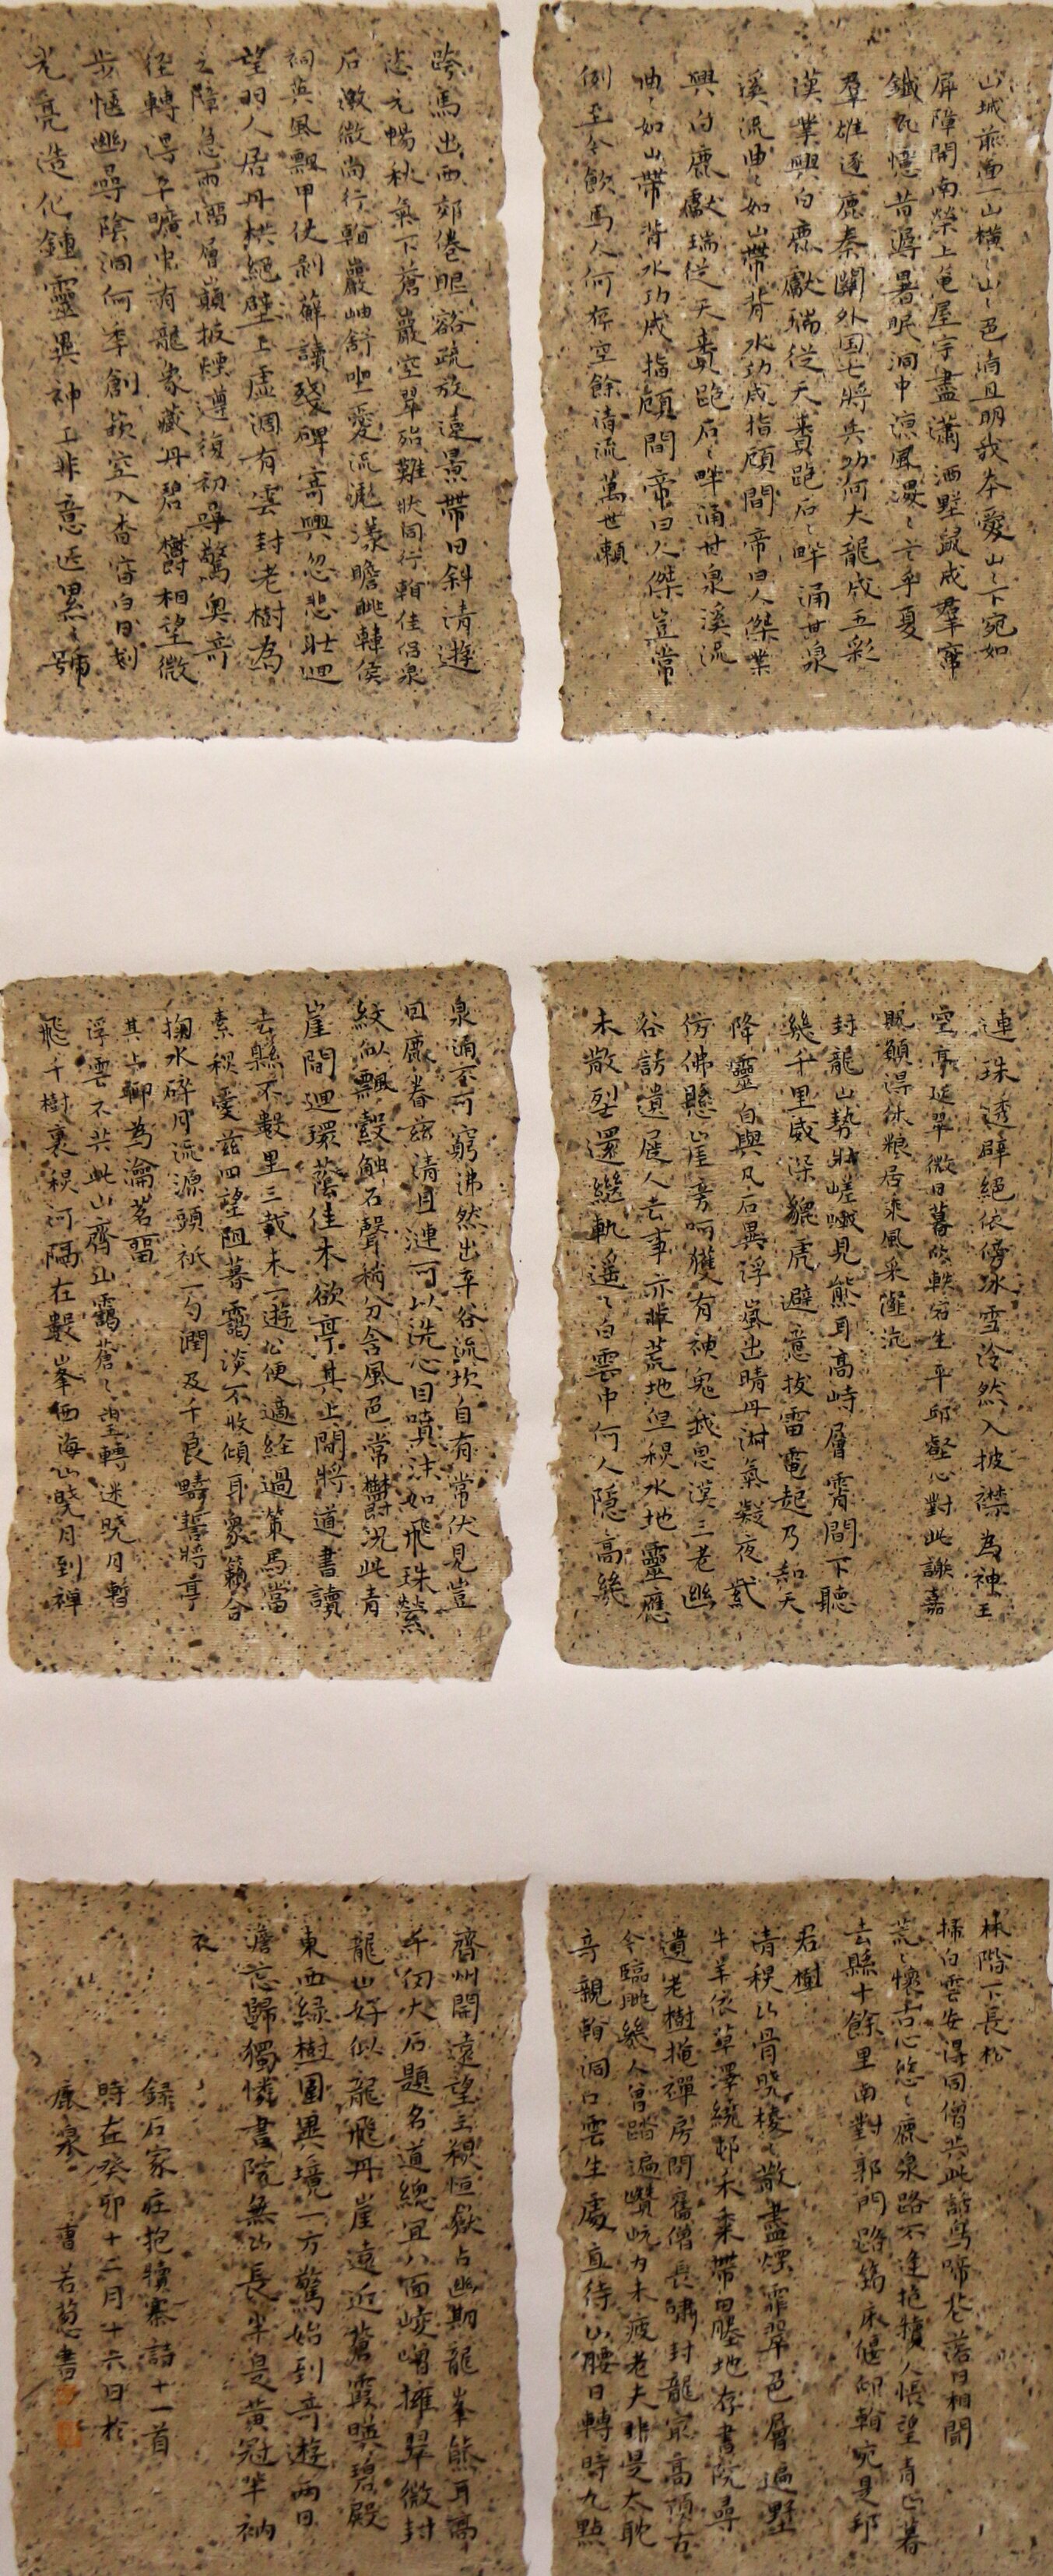 山城前面一山横々山々色淌且明我本愛山々下宛如
屏障開南榮上亀屋宇盡瀟洒野鼠成羣窜
鐡瓦憶昔避暑眠洞中凉風漫々亡乎夏
羣雄逐鹿秦關外国士將兵功何大龍成五彩
漢業興白鹿獻瑞從天賚跑石々畔涌甘泉
溪流曲々如山帶背水功成指顧間帝曰人傑業
興白鹿獻瑞從天賚跑石々畔涌甘泉溪流
曲々如山帶背水功成指顧間帝曰人傑豈常
例至今飲馬人何存空餘清流萬世賴
跨馬出西郊倦眼豁疏放遠景帶日斜清遊
恣元暢秋氣下蒼巖空翠殆難狀同行翰佳侣泉
石漱微尚行翰巖岫舒坐愛流漉漾瞻眺轉侯
祠英風飄甲仗剥蘚讀殘碑寄興忽悲壯迴
望羽人居丹栱絕壁上虛凋有雲封老樹為
之障急雨𨻶層巔披煙遵復初尋驚奥奇
徑轉得平曠中有龍象藏丹碧欝相望微
步愜幽尋陰洞何季創嵌空入杳窅白日刬
光亮造化鍾靈異神工非意匠累々號
連珠透壁絕依傍冰雪泠然入披襟為神王
空亭延翠微日暮欣軼宕生平邱壑心對此謝嘉
貺願得休粮居乘風采澄沆
封龍山勢壯嵯峨見熊耳高峙層霄間下聽
幾千里威深貔虎避意拔雷電起乃知天
降靈自與凡石異浮嵐出晴丹澍氣凝夜紫
彷彿懸崖旁呵獲有神鬼我思漢三老幽
谷訪遺屐人去事亦非荒地皇稷水地靈應
未散烈還繼軌遥々白雲中何人隱高幾
泉涌不可窮沸然出平谷流坎自有常伏見豈
回鹿眷茲清且漣可以洗心目噴沫如飛珠縈
紋似飄縠觸石聲稍分含風色常欝況此青
崖間迴環蔭佳木欲亭其上閒將道書讀
去縣不數里三載未一遊公便適経過策馬當
素稷愛茲四望阻暮靄淡不收傾耳衆籟合
掬水碎月流源頭祇一勺潤及千良疇誓將亭
其上聊為瀹茗㽞
浮雲不共此山齊山靄蒼々望轉迷晓月暫
飛千樹裏稷河隔在數峯西海山曉月到禪
林階下長松
掃白雲安得同僧共此語鸟啼花落日相聞
荒々懷古心悠々鹿泉路不逢抱犢人悵望青山暮
去縣十餘里南對郭門路鎊床偃卽翰宛是邱
君樹
清稷以骨晓棱々散盡煙霏翠色層遍野
牛羊依草澤繞邨禾黍帶田塍地存書院尋
遺老樹掩禪房問舊僧長嘯封龍㝡高頂古
今臨眺幾人曾踏遍巑岏力未疲老夫非是太耽
奇親翰洞口雲生處直待山腰日轉時九點
齊州開遠望三稷恒嶽占幽期龍峯熊耳高
千仞大石題名道總宜八面峻嶒擁翠微封
龍山好似龍飛丹崖遠近蒼霞暎碧殿
東西緑樹圍異境一方驚始到奇遊兩日
澹忘歸獨憐書院無以長半是黄冠半衲
衣
録石家莊抱犢寨詩十一首
時在癸卯十二月十六日於
鹿泉　曹若葱書